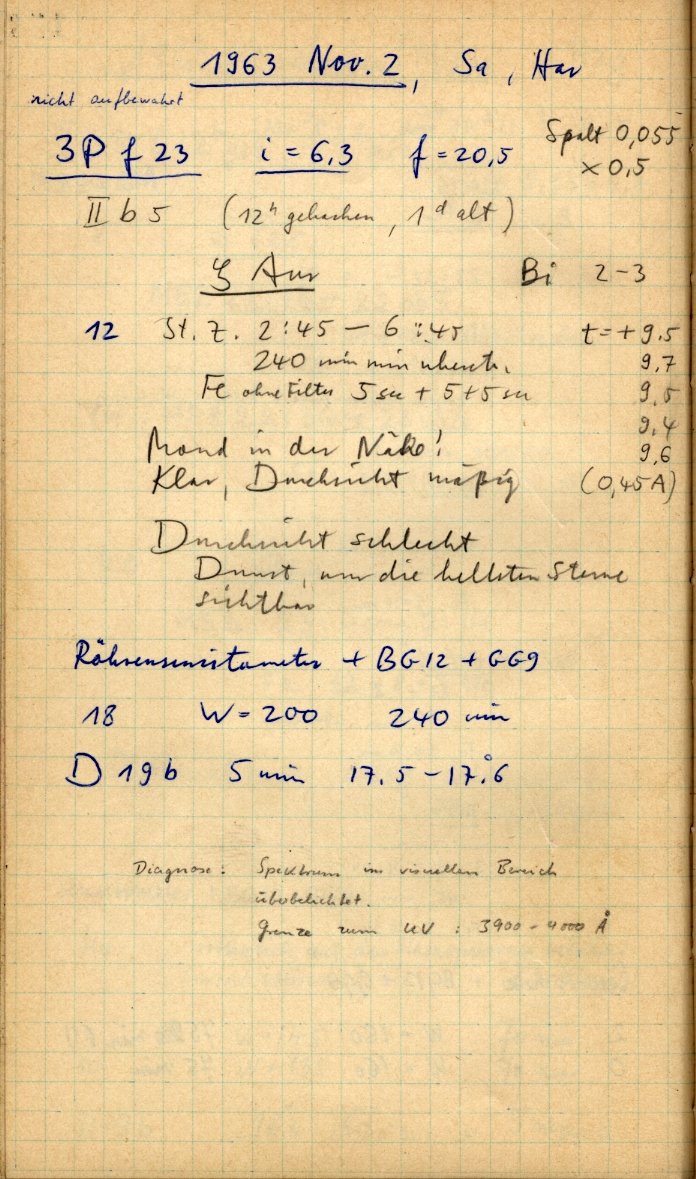 1963 Nov. 2, Sa, Har
nicht aufbewahrt
3P f 23 i = 6,3 f = 20,5 Spalt 0,055
× 0,5
II b 5 (12ʰ gebacken, 1ᵈ alt)
ζ Aur Bi 2-3
12 St. Z. 2:45 – 6:45 t = + 9.5
240 min 9,7
Fe ohne Filter 5 sec + 5 + 5 sec 9,5
9,4
Mond in der Nähe! 9,6
Klar, Durchsicht mäßig (0,45 A)
Durchsicht schlecht
Dunst, nur die hellsten Sterne
sichtbar
Röhrensensitometer + BG12 + GG9
18 W = 200 240 min
D 19 b 5 min 17.5 – 17.°6
Diagnose: Spektrum im visuellen Bereich
überbelichtet.
Grenze zum UV : 3900 – 4000 Å